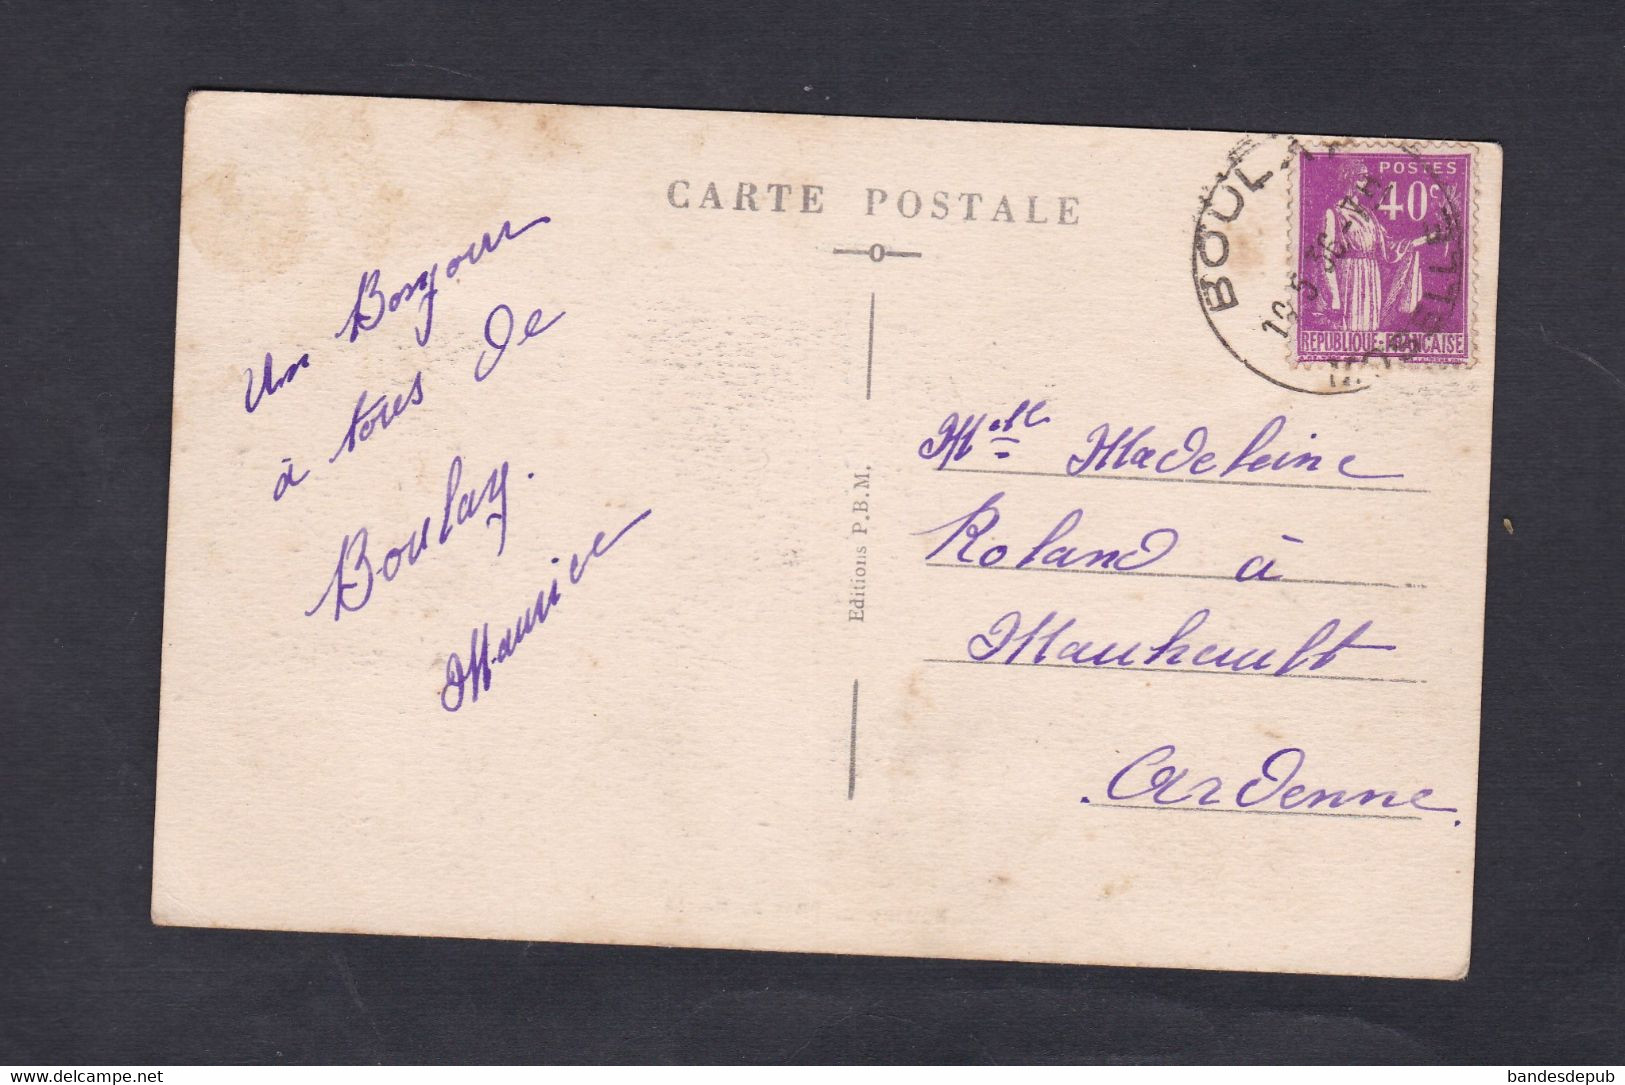 CARTE POSTALE
Un Bonjour
à tous de
Boulay.
Maurice
Editions P.B.M.
POSTES
40c
REPUBLIQUE-FRANCAISE
BOULAY
MOSELLE
Melle Madeleine
Roland à
Mauhault
Ardenne.
https://www.delcampe.net
bandesdepub